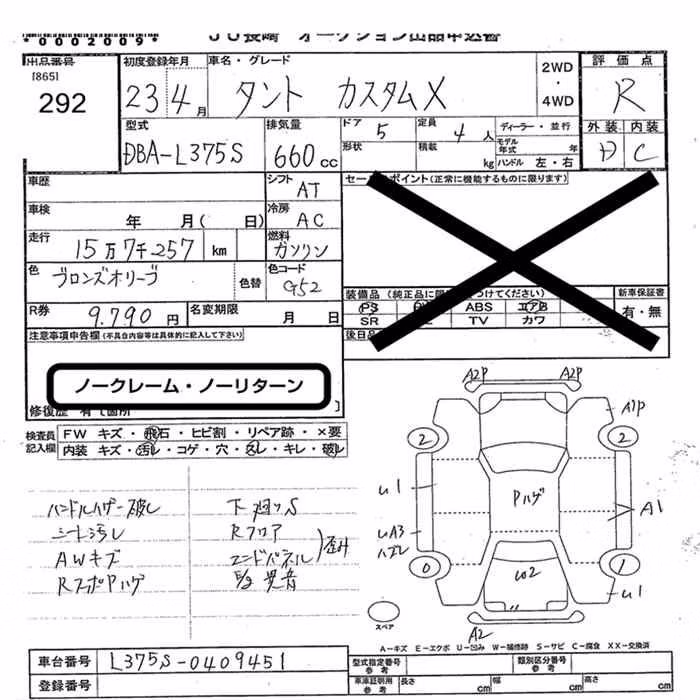 *0002009*
JU長崎 オークション出品申込書
出品番号
[865]
292
初度登録年月
23 4月
車名・グレード
タント カスタムX
2WD
・
4WD
評価点
R
外装 内装
D C
型式
DBA-L375S
排気量
660cc
ドア 5
形状
定員 4人
積載 kg
ディーラー・並行
モデル年式 年
ハンドル 左・右
車歴
シフト AT
車検 年 月( 日)
冷房 AC
走行 15万7千257 km
燃料 ガソリン
色 ブロンズオリーブ
色替
色コード G52
R券 9.790円
名変期限 月 日
セールスポイント(正常に機能するものに限ります)
装備品(純正品に限 つけてください)
PS ABS エアB
SR TV カワ
新車保証書
有・無
後日
注意事項申告欄(不具合内容等は具体的に記入して下さい)
ノークレーム・ノーリターン
修復歴 有て箇所
検査員記入欄
FW キズ・飛石・ヒビ割・リペア跡・×要
内装 キズ・汚レ・コゲ・穴・スレ・キレ・破レ
ハンドルハザー破レ
シート汚レ
AWキズ
RスポPハゲ
下廻りS
Rフロア
エンドパネル
歪み
E/g 異音
A2P
A2P
A1P
2
2
U1
Pハゲ
A1
UA3
ハズレ
0
W2
1
U1
A2
スペア
A-キズ E-エクボ U-凹み W-補修跡 S-サビ C-腐食 XX-交換済
車台番号 L375S-0409451
登録番号
型式指定番号 参考
類別区分番号 参考
車庫証明用 参考
長さ cm
幅 cm
高さ cm